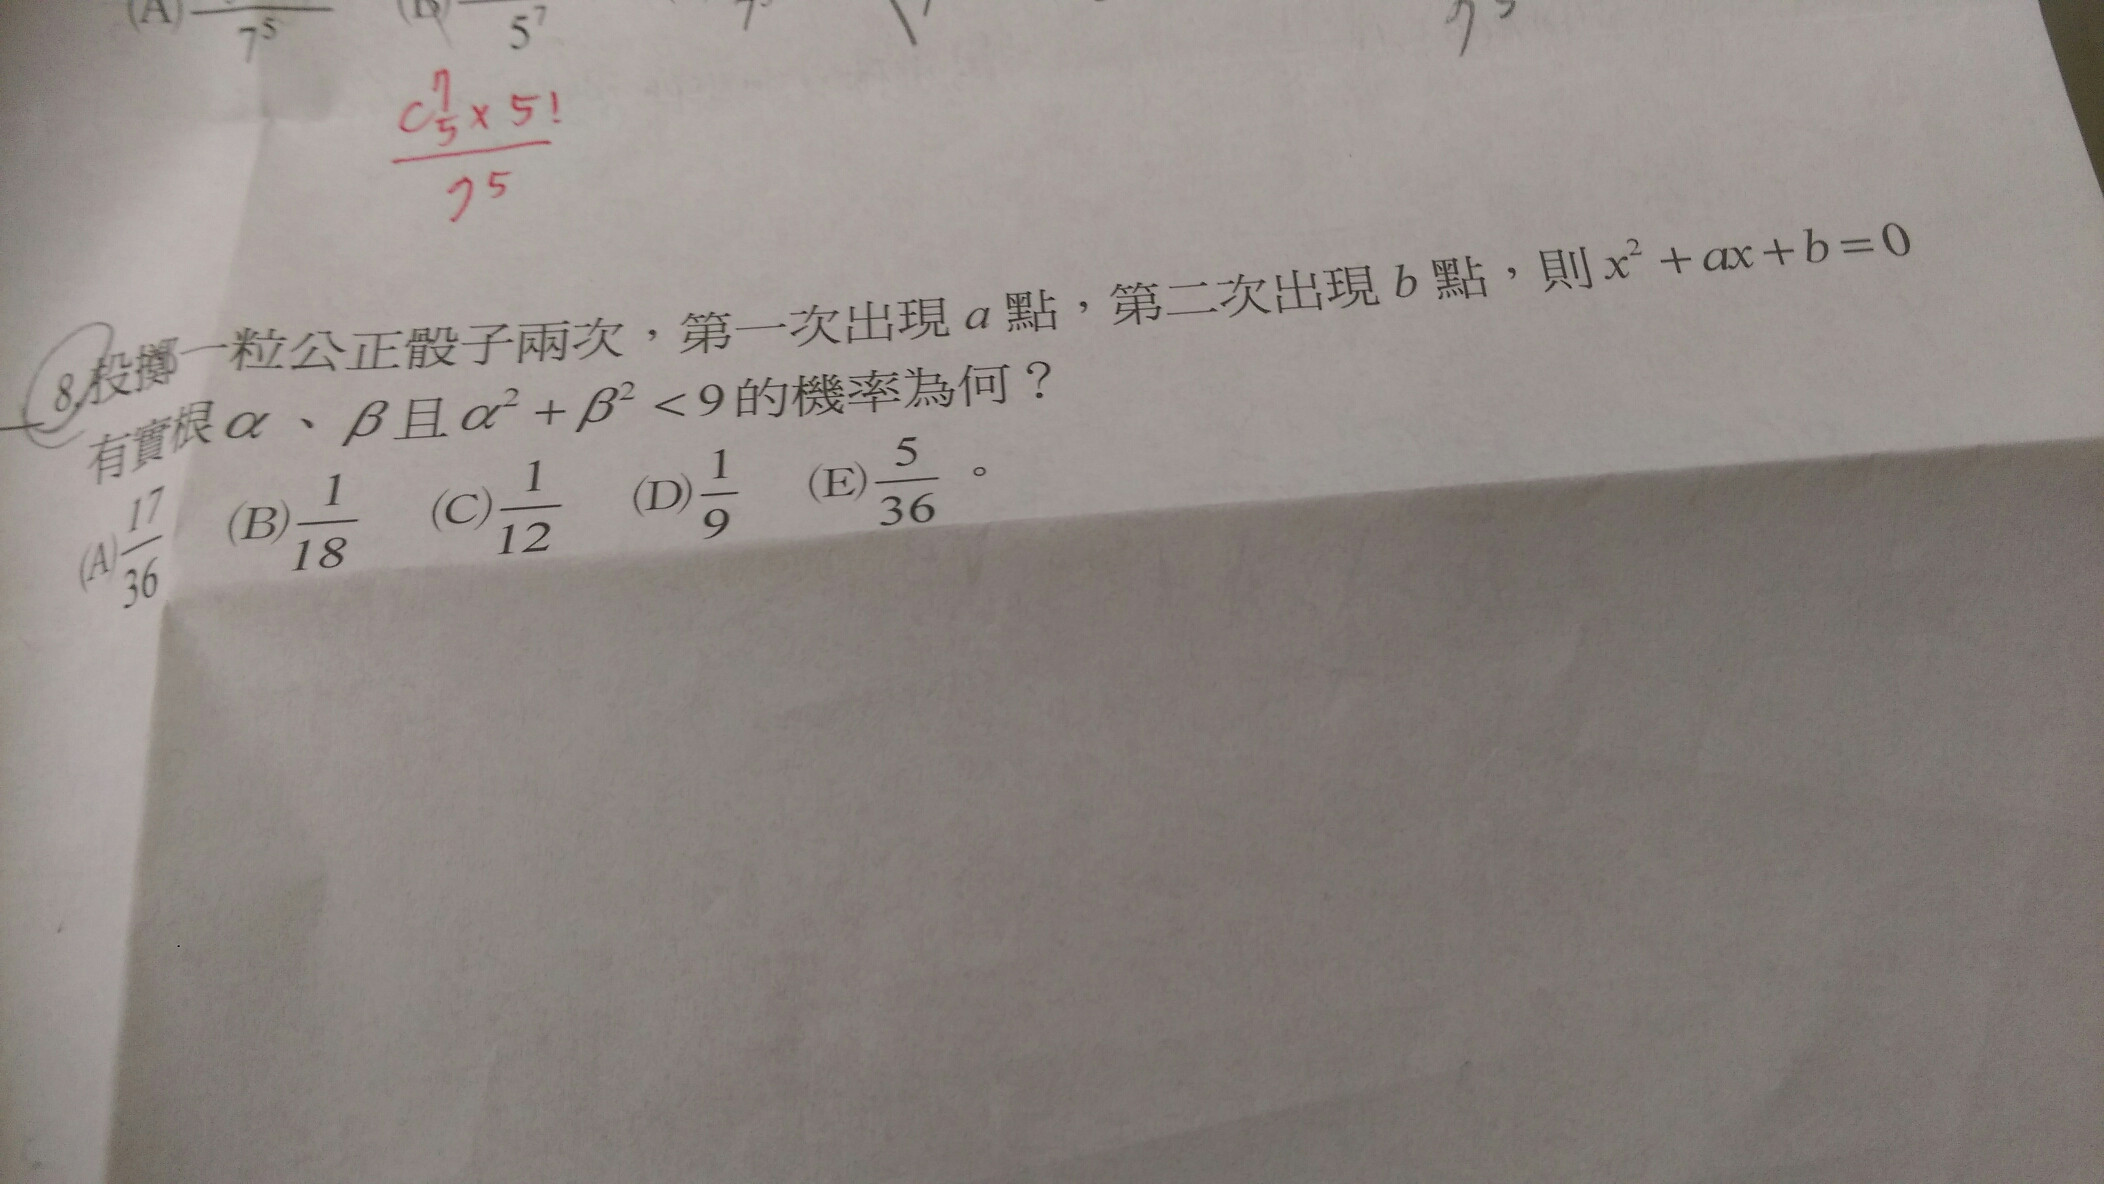 (A) 7⁵ (B) 5⁷ 7 7⁵
C⁷₅ × 5!
7⁵
8. 投擲一粒公正骰子兩次，第一次出現 a 點，第二次出現 b 點，則 x² + ax + b = 0
有實根 α 、 β 且 α² + β² < 9 的機率為何？
(A) 17/36 (B) 1/18 (C) 1/12 (D) 1/9 (E) 5/36 。